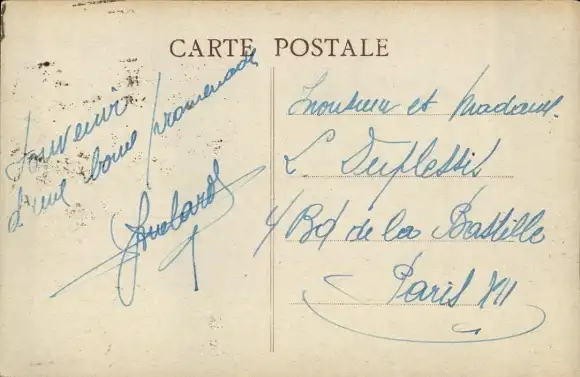 CARTE POSTALE
Souvenir
d'une bonne promenade
Monsieur et Madame
L. Duplessis
4 Bd de la Bastille
Paris XII